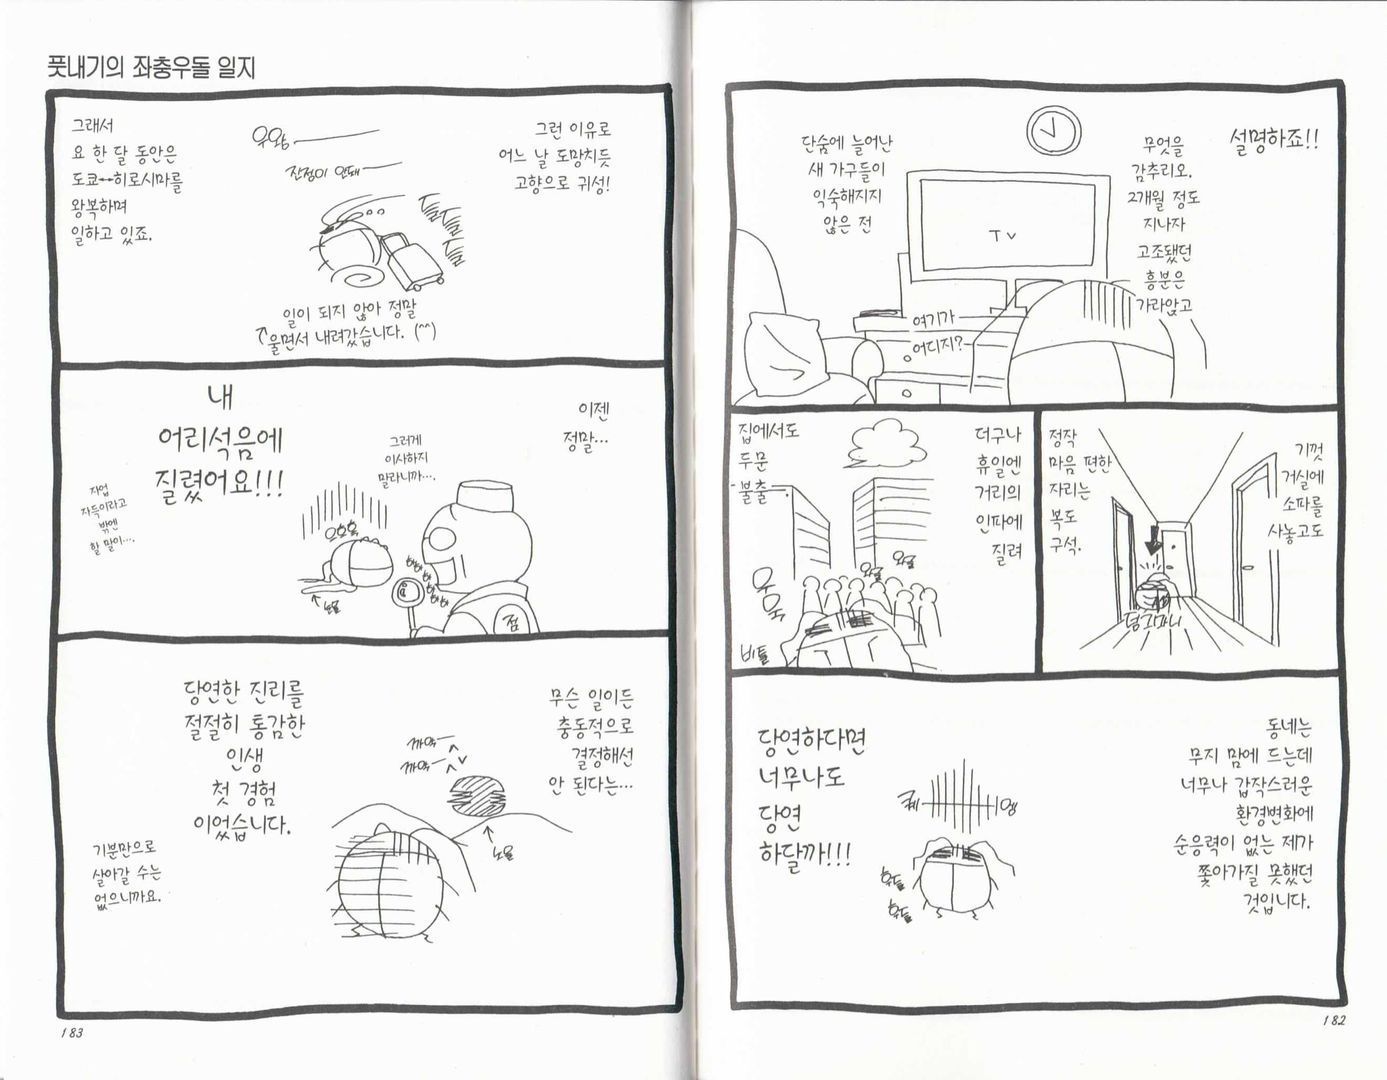 설명하죠!!
무엇을
감추리오.
2개월 정도
지나자
고조됐던
흥분은
가라앉고
단숨에 늘어난
새 가구들이
익숙해지지
않은 전
TV
여기가
어디지?
기껏
거실에
소파를
사놓고도
정작
마음 편한
자리는
복도
구석.
덩그러니
더구나
휴일엔
거리의
인파에
질려
집에서도
두문
불출.
와글
와글
우욱
비틀
동네는
무지 맘에 드는데
너무나 갑작스러운
환경변화에
순응력이 없는 제가
쫓아가질 못했던
것입니다.
당연하다면
너무나도
당연
하달까!!!
182
풋내기의 좌충우돌 일지
그런 이유로
어느 날 도망치듯
고향으로 귀성!
우왕
진정이 안돼
일이 되지 않아 정말
울면서 내려갔습니다. (^^)
그래서
요 한 달 동안은
도쿄↔히로시마를
왕복하며
일하고 있죠.
이젠
정말...
그러게
이사하지
말라니까...
내
어리석음에
질렸어요!!!
점
자업
자득이라고
밖엔
할 말이...
무슨 일이든
충동적으로
결정해선
안 된다는...
까악
까악
노을
당연한 진리를
절절히 통감한
인생
첫 경험
이었습니다.
기분만으로
살아갈 수는
없으니까요.
183